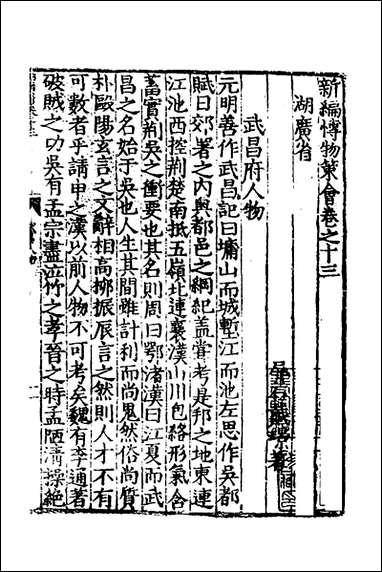 新編博物策會卷之十三
湖廣省
武昌府人物
元明善作武昌記曰墉山而城塹江而池左思作吳都
賦曰郊署之內與都邑之綱紀蓋嘗考是邦之地東連
江池西控荊楚南抵五嶺北連襄漢山川包絡形氣含
蓄實荊吳之衝要也其名則周曰鄂渚漢曰江夏而武
昌之名始于吳也人生其間雖計利而尚鬼然俗尚質
朴歐陽玄言之文辭相高柳振辰言之然則人才不有
可數者乎請申之漢以前人物不可考矣魏有李通著
破賊之功吳有孟宗盡泣竹之孝晉之時孟陋清操絕